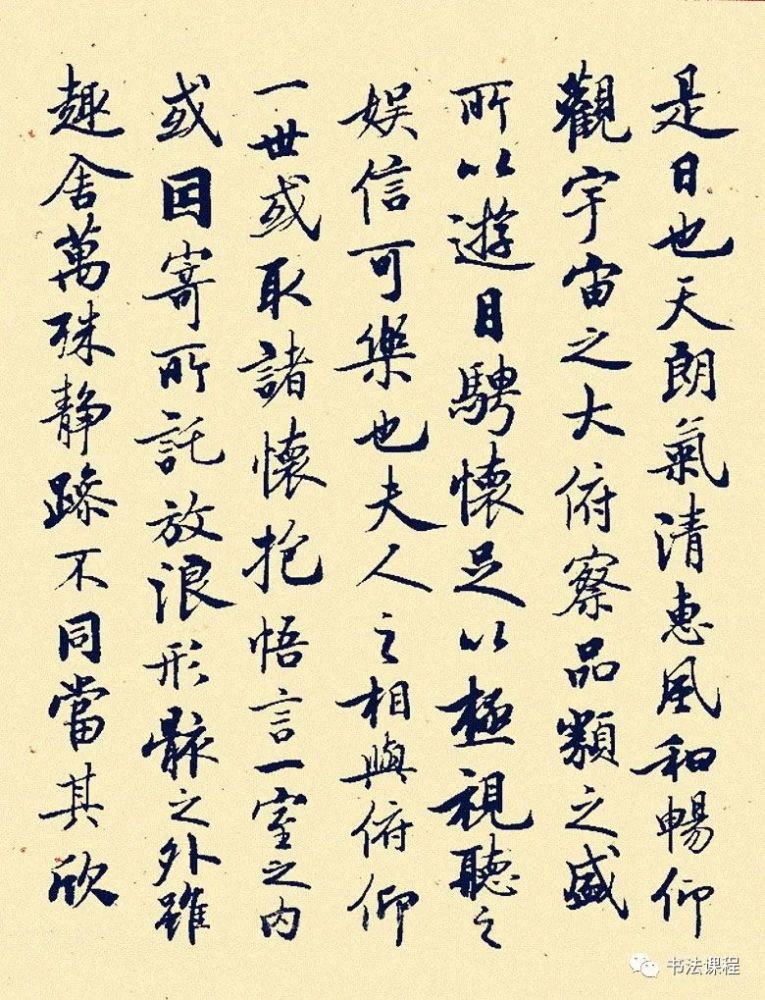 是日也天朗氣清惠風和暢仰
觀宇宙之大俯察品類之盛
所以遊目騁懷足以極視聽之
娱信可樂也夫人之相與俯仰
一世或取諸懷抱悟言一室之内
或因寄所託放浪形骸之外雖
趣舍萬殊静躁不同當其欣
书法课程